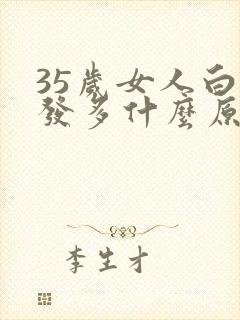 35歲女人白
發多什麼原
李生才